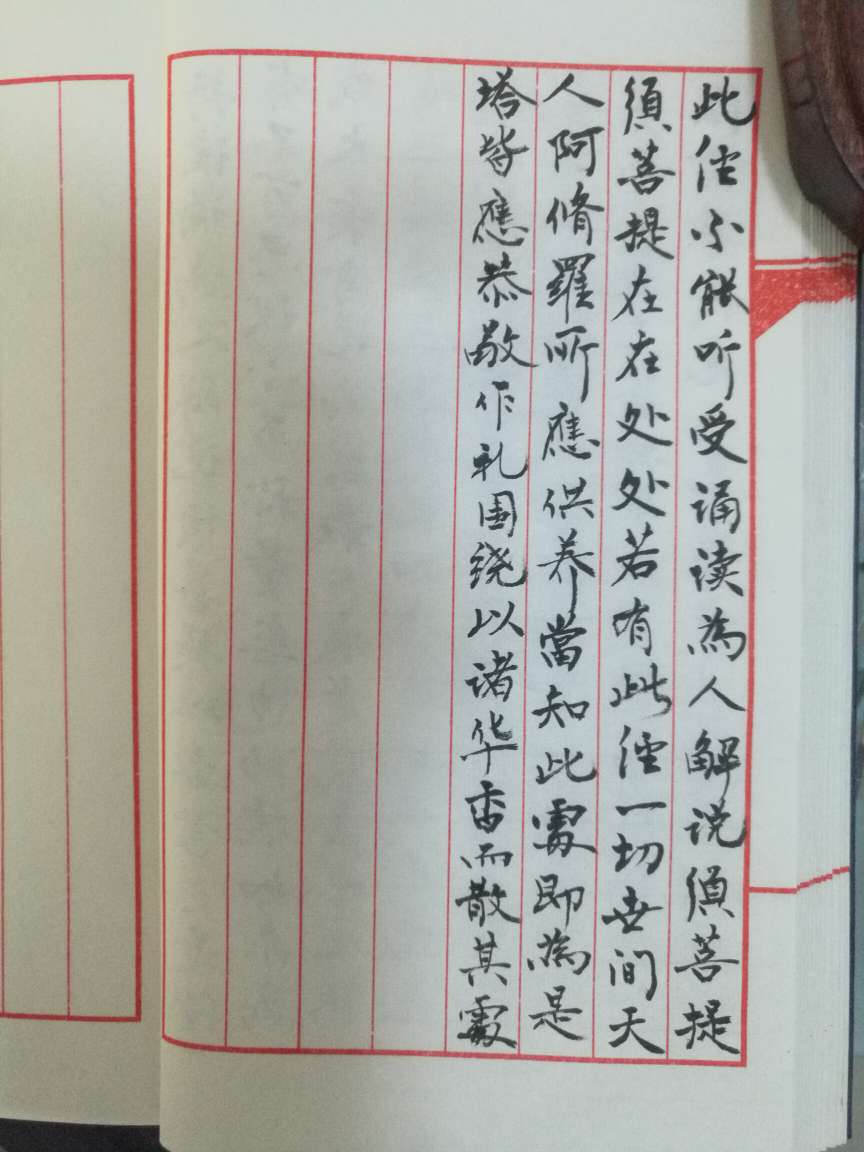 此经不能听受诵读為人解说須菩提
須菩提在在处处若有此經一切世间天
人阿脩羅所應供养當知此處即為是
塔皆應恭敬作礼围绕以诸华香而散其處